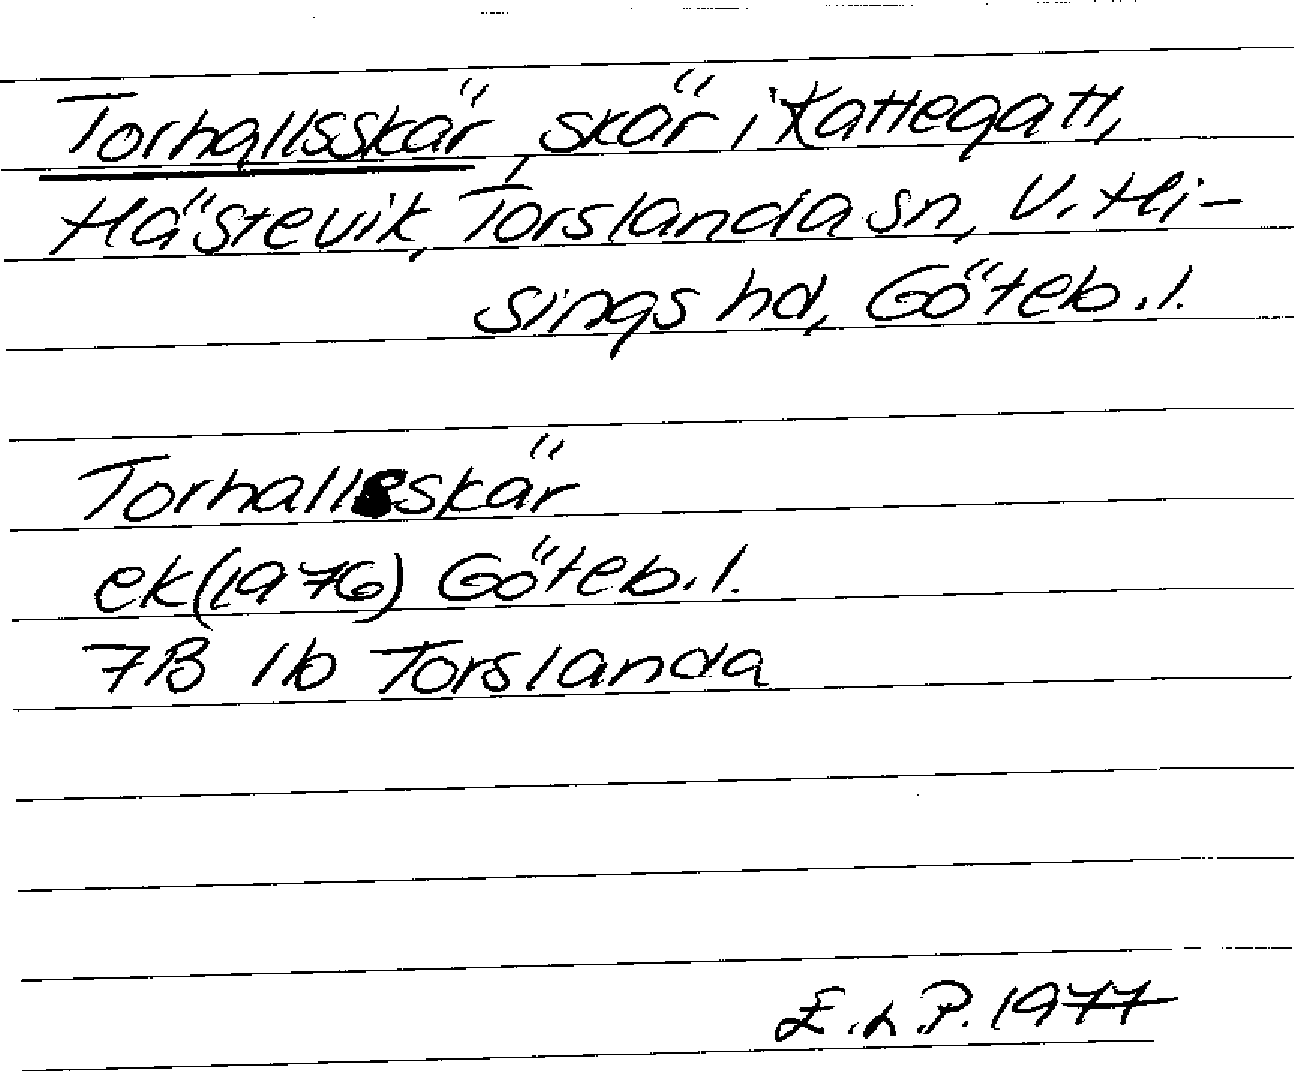 Torhallsskär, skär i Kattegatt,
Hästevik, Torslanda sn, V. Hi-
sings hd, Göteb. l.
Torhallsskär
ek (1976) Göteb. l.
7B 1b Torslanda
E. L. P. 1977